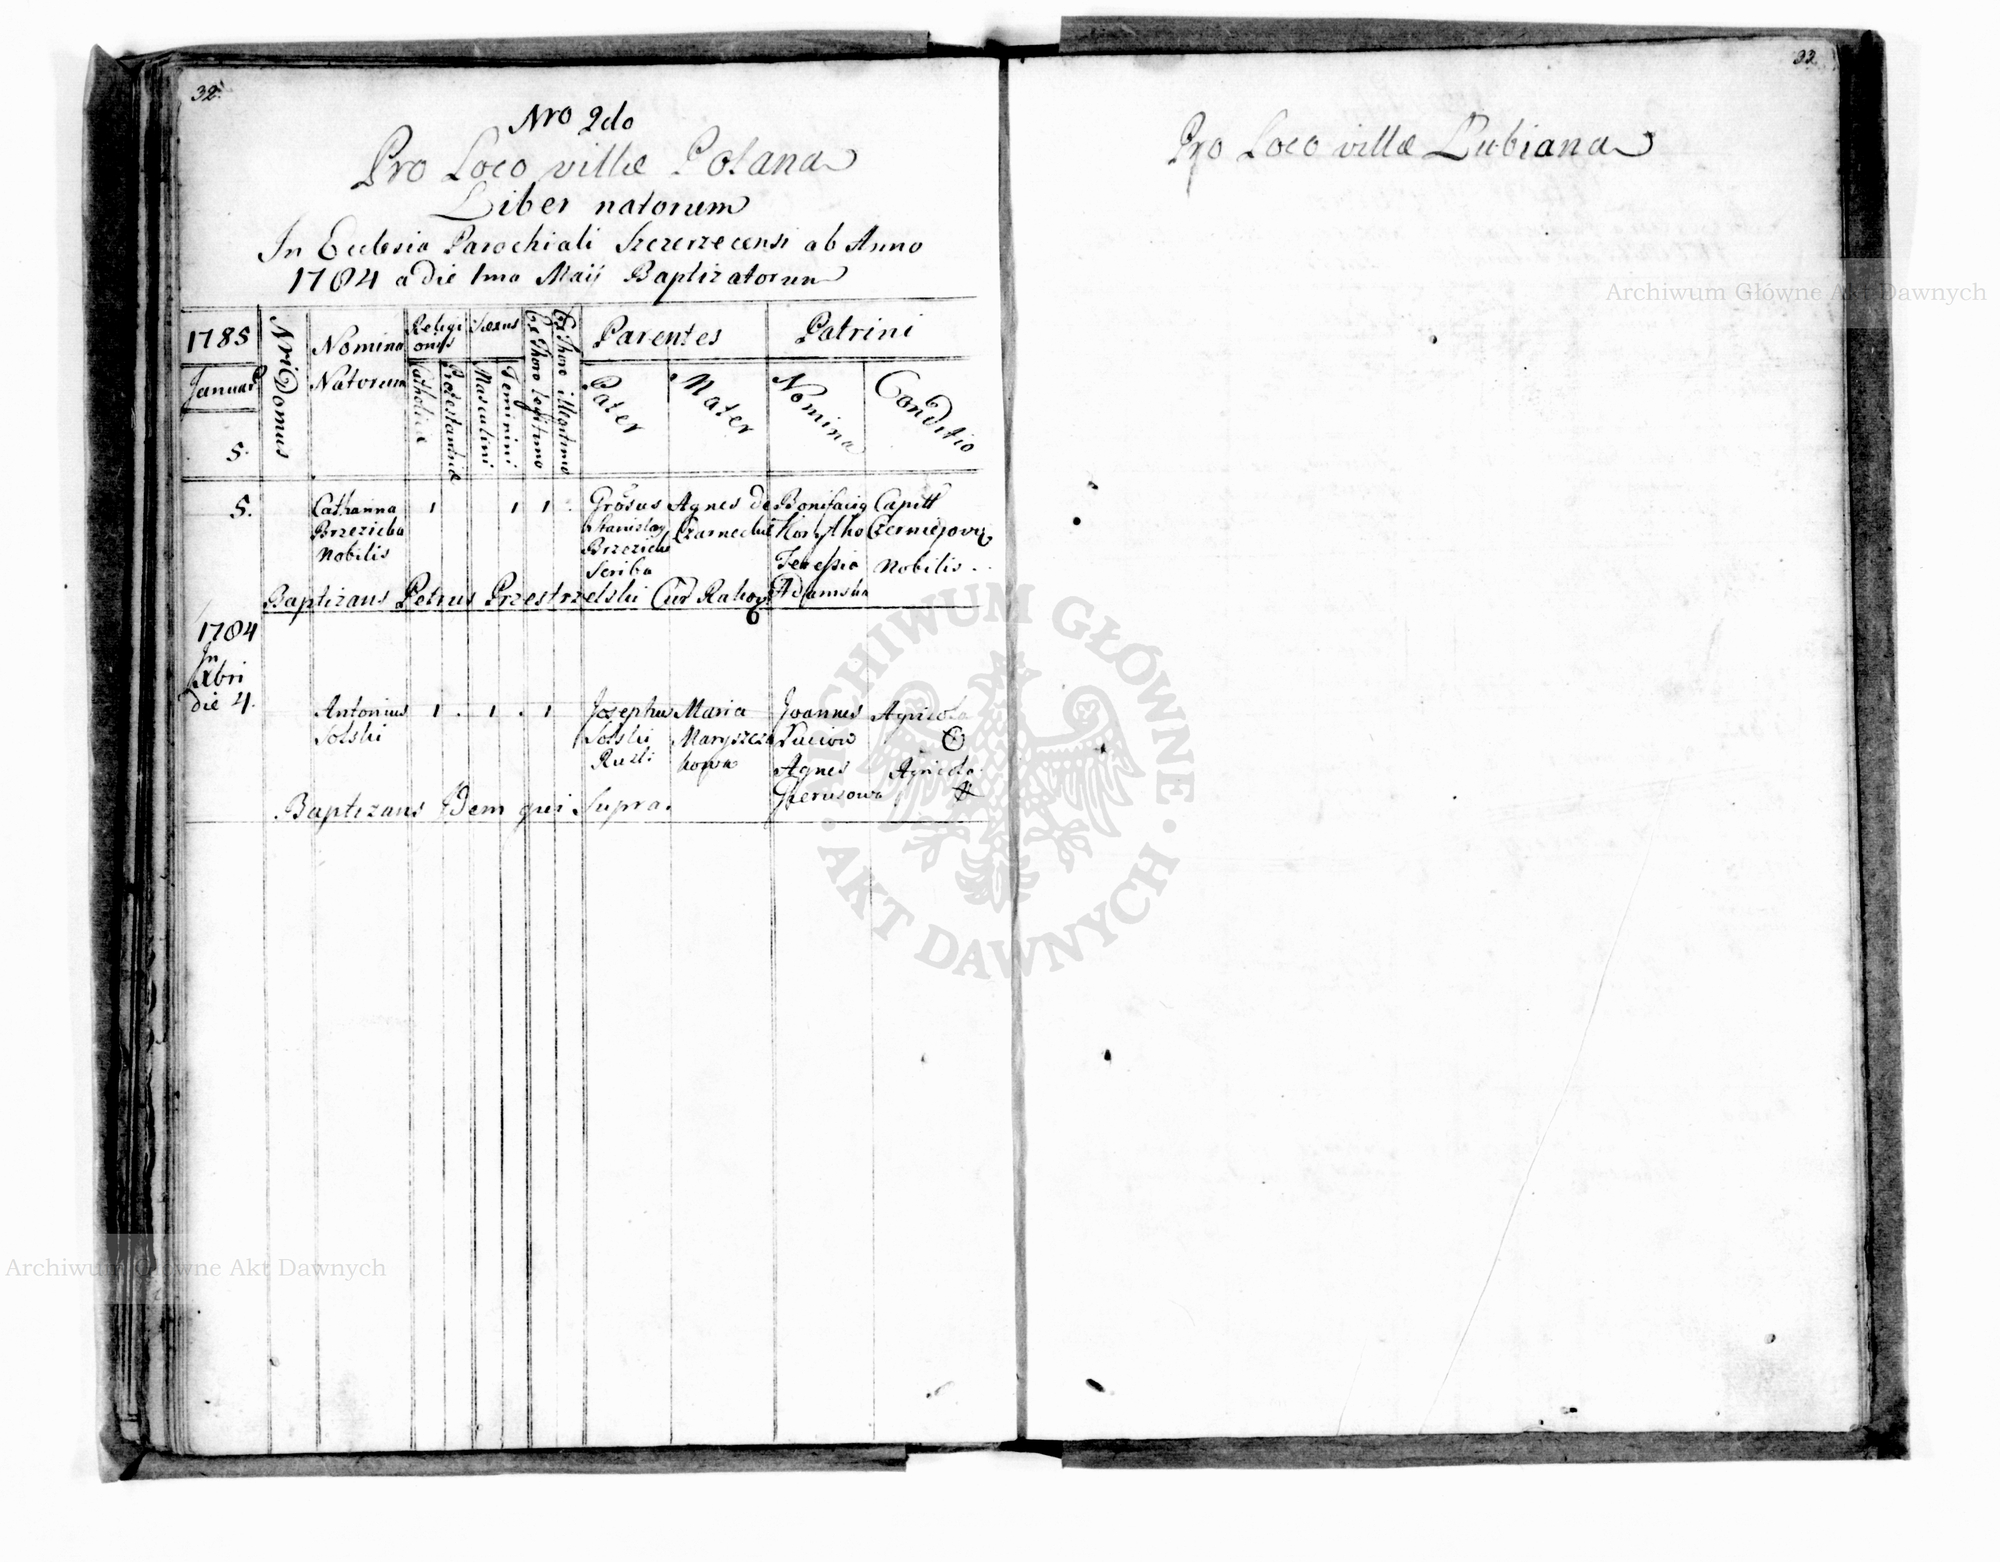 32.
Nro 2do
Pro Loco villæ Polana
Liber natorum
In Ecclesia Parochiali Szczerzecensi ab Anno
1784 a die 1ma Maij Baptizatorum
1785
Januar
5.
Nri Domus
Nomina
Natorum
Religi
onis
Catholicæ
Protestanticæ
Sexus
Masculini
Feminini
Ex Thoro legitimo
Ex Thoro illegitimo
Parentes
Pater
Mater
Patrini
Nomina
Conditio
5.
Catharina
Brzezicka
Nobilis
1
1
1
Grosus
Stanislaus
Brzezicki
Scriba
Agnes de
Czarnecka
Bonifacig
Korytko
Teressia
Adamska
Capitt
Czerniejovig
Nobilis
Baptizans Petrus Przestrzelski Cur Rakoy
1784
In
Xbri
die 4.
Antonius
Solski
1
1
1
Josephus
Solski
Rusti
Maria
Marysczu
kowa
Joannes
Agnes
Agricola
Agricola
Baptizans Idem qui Supra.
33
Pro Loco villæ Lubiana
Archiwum Główne Akt Dawnych
ARCHIWUM GŁÓWNE
AKT DAWNYCH
Archiwum Główne Akt Dawnych